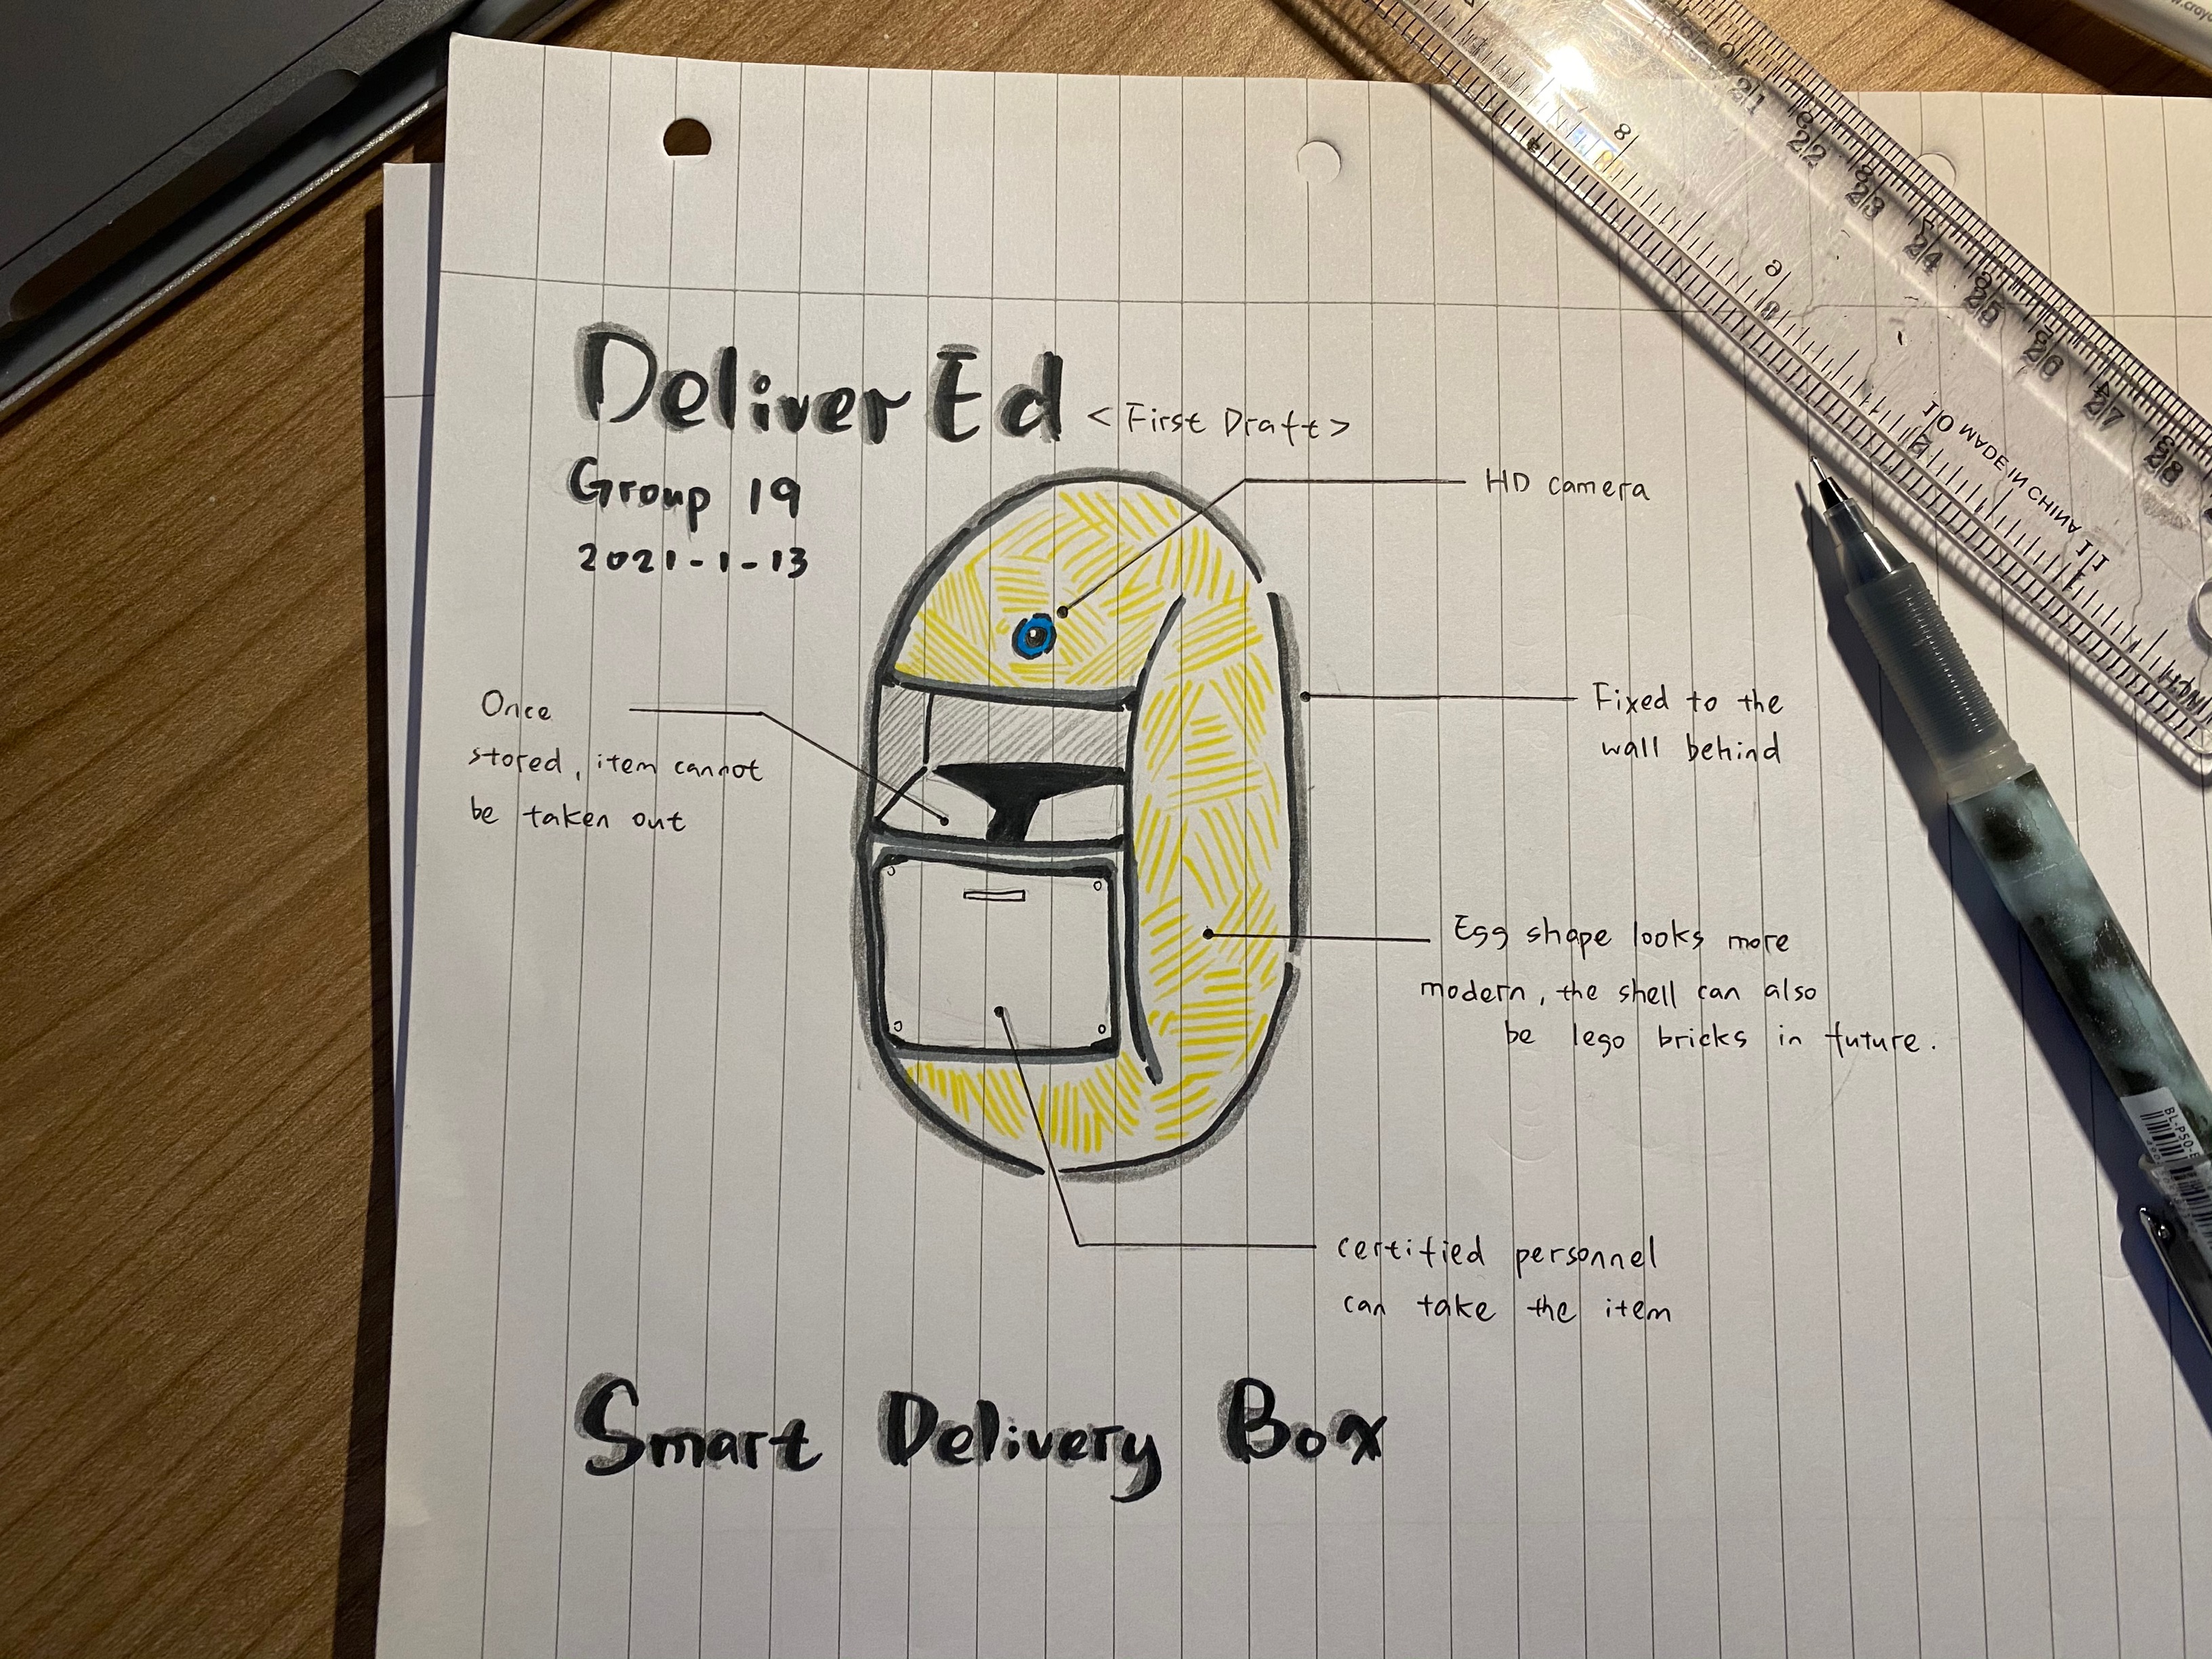 DeliverEd <First Draft>
Group 19
2021-1-13
HD camera
Once
stored, item cannot
be taken out
Fixed to the
wall behind
Egg shape looks more
modern, the shell can also
be lego bricks in future.
certified personnel
can take the item
Smart Delivery Box
8
9
10 MADE IN CHINA 11
21
22
23
24
25
26
27
28
BL-P50-E